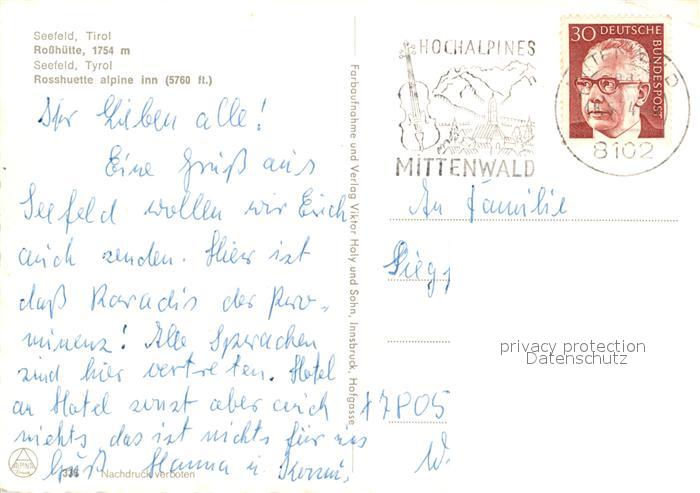 Seefeld, Tirol
Roßhütte, 1754 m
Seefeld, Tyrol
Rosshuette alpine inn (5760 ft.)
Ihr Lieben alle!
Eine Gruß aus
Seefeld wollen wir Euch
auch senden. Hier ist
daß Paradis der Pro-
minenz! Alle Sprachen
sind hier vertreten. Hotel
an Hotel sonst aber auch
nichts, das ist nichts für uns
Gruß Hanna u.
336 Nachdruck verboten
ALPINA
Farbaufnahme und Verlag Viktor Holy und Sohn, Innsbruck, Hofgasse
HOCHALPINES
MITTENWALD
30 DEUTSCHE
BUNDESPOST
8102
An Familie
privacy protection
Datenschutz
W.